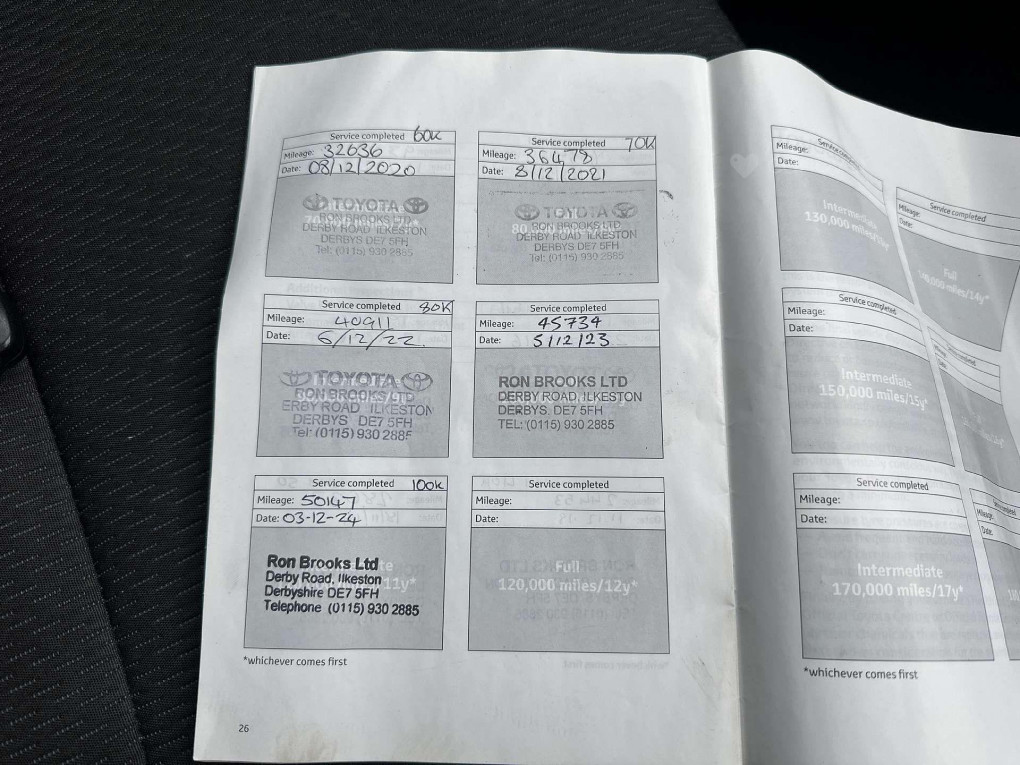 Service completed 60K
Mileage: 32636
Date: 08/12/2020
TOYOTA
RON BROOKS LTD
DERBY ROAD ILKESTON
DERBYS DE7 5FH
Tel: (0115) 930 2885
Service completed 70K
Mileage: 36478
Date: 8/12/2021
TOYOTA
RON BROOKS LTD
DERBY ROAD ILKESTON
DERBYS DE7 5FH
Tel: (0115) 930 2885
Service completed 80K
Mileage: 40911
Date: 6/12/22
TOYOTA
RON BROOKS LTD
ERBY ROAD ILKESTON
DERBYS DE7 5FH
Tel: (0115) 930 2885
Service completed
Mileage: 45734
Date: 5/12/23
RON BROOKS LTD
DERBY ROAD, ILKESTON
DERBYS, DE7 5FH
TEL: (0115) 930 2885
Service completed 100K
Mileage: 50147
Date: 03-12-24
Ron Brooks Ltd
Derby Road, Ilkeston
Derbyshire DE7 5FH
Telephone (0115) 930 2885
Service completed
Mileage:
Date:
Full
120,000 miles/12y*
*whichever comes first
26
Service completed
Mileage:
Date:
Intermediate
130,000 miles/
Service completed
Mileage:
Date:
Full
Service completed
Mileage:
Date:
Intermediate
150,000 miles/15y*
Service completed
Mileage:
Date:
Intermediate
170,000 miles/17y*
*whichever comes first